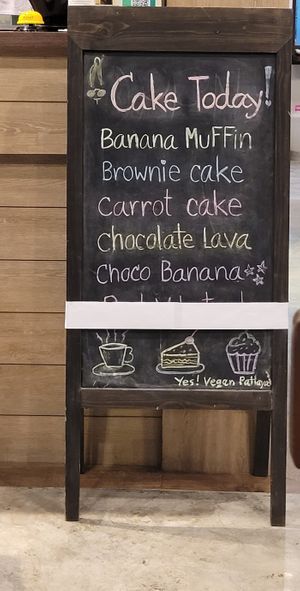 Cake Today!
Banana Muffin
Brownie cake
Carrot cake
Chocolate Lava
Choco Banana
Yes! Vegan Pattaya